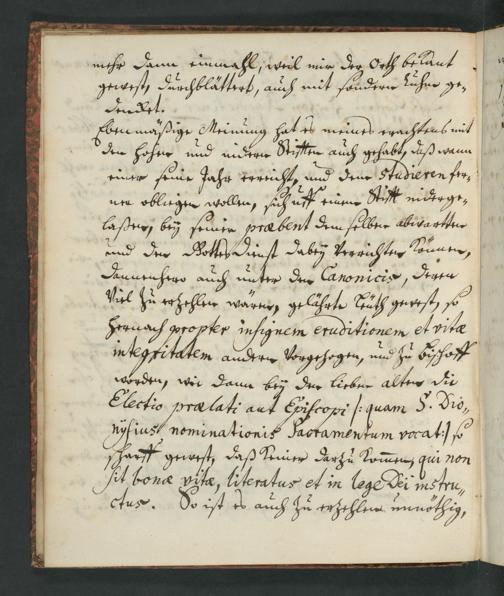 mehr dann einmahl, weil mir der Orth bekant
gewest, durchblättert, auch mit sondern ruhm ge-
dencket.
Ebenmäßige Meinung hat es meines erachtens mit
den hohen und nidern Stifften auch gehabt, daß wann
einer seine Jahr erreicht, und dem studieren fer-
ner obliegen wollen, sich uff einen Stifft niderge-
laßen, bey seiner præbent demselben abwartten
und den Gottesdienst dabey verrichten können,
dannenhero auch unter den Canonicis, deren
viel zu erzehlen wären, gelährte Leüth gewest, so
hernach propter insignem eruditionem et vitæ
integritatem andern vorgezogen, und zu Bischoff
worden, wie dann bey den lieben alten die
Electio prælati aut Episcopi |: quam S. Dio-
nysius nominationis Sacramentum vocat :| so
scharff gewest, daß keiner darzu kom̄en, qui non
sit bonæ vitæ, literatus et in lege Dei instru-
ctus. So ist es auch zu erzehlen unnöthig,